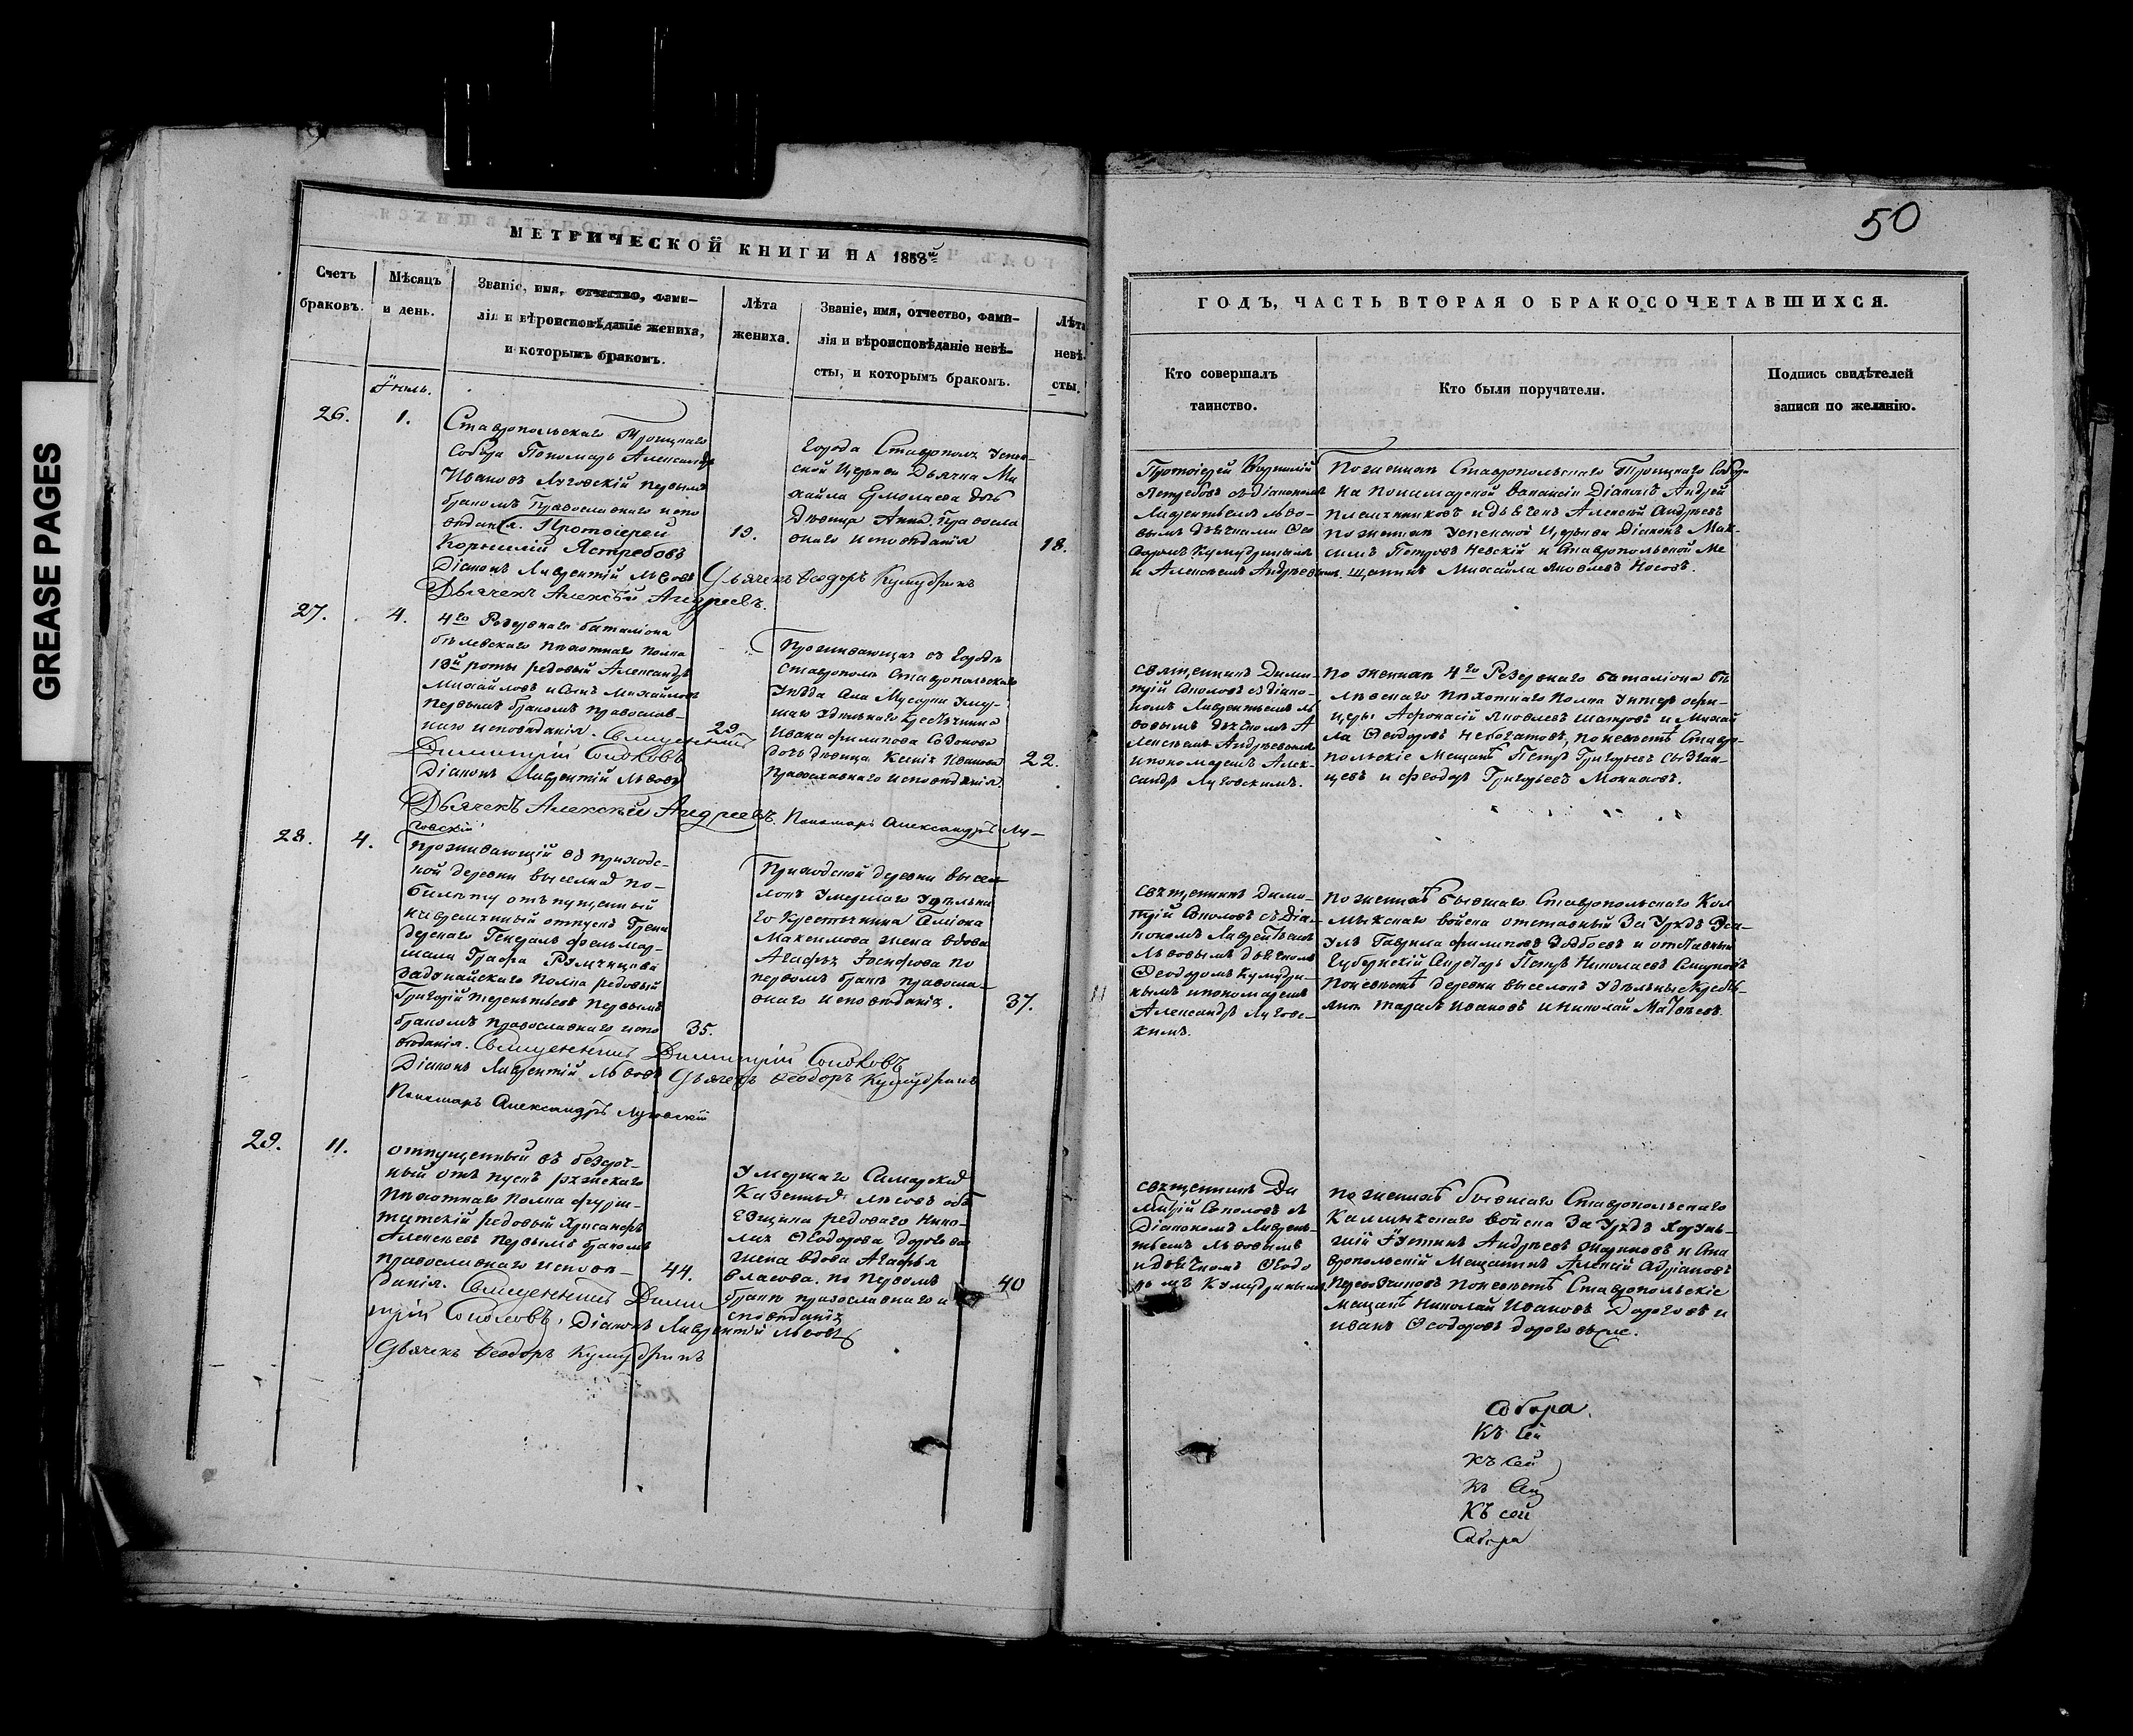 GREASE PAGES
МЕТРИЧЕСКОЙ КНИГИ НА 1858й
Счетъ браковъ.
Мѣсяцъ и день.
Званіе, имя, отчество, фами-
лія и вѣроисповѣданіе жениха,
и которымъ бракомъ.
Лѣта жениха.
Званіе, имя, отчество, фами-
лія и вѣроисповѣданіе невѣ-
сты, и которымъ бракомъ.
Лѣта невѣ-
сты.
Іюль.
26.
1.
Ставропольскаго Троицкаго
Собора Пономарь Александръ
Ивановъ Луговскій первымъ
бракомъ Православнаго испо
вѣданія. Протоіерей
Корнилій Ястребовъ
Діаконъ Лаврентій Львовъ Дьячекъ Ѳеодоръ Кумудринъ
Дьячекъ Алексѣй Андреевъ.
19.
Города Ставрополя Успен
ской Церкви Дьячка Ми
хайла Ермолаева дочь
Дѣвица Анна. Правосла
внаго исповѣданія
18.
27.
4.
4го Резервнаго баталіона
бѣлевскаго пѣхотнаго полка
роты рядовый Александръ
Михайловъ
Первымъ бракомъ православ-
наго исповѣданія. Священникъ
Димитрій Соколовъ
Діаконъ Лаврентій Львовъ
Дьячекъ Алексѣй Андреевъ. Пономарь Александръ Лу-
говскій
29
Проживающая въ городѣ
Ставрополѣ Ставропольскаго
Уѣзда
Удѣльнаго Крестьянина
Ивана Филипова
дочь дѣвица Ксенія Иванова
Православнаго исповѣданія.
22.
28.
4.
Проживающій въ приход-
ской деревни выселкахъ по-
билету отъ пущенный
Грена
дерскаго Генералъ фельмар-
шала Графа Румянцова
Задунайскаго Полка рядовый
Григорій Терентьевъ первымъ
бракомъ православнаго испо
вѣданія. Священникъ Димитрій Соколовъ
Діаконъ Лаврентій Львовъ Дьячекъ Ѳеодоръ Кумудринъ
Пономарь Александръ Луговскій
35.
Приходской деревни высел
локъ Умершаго Удѣльна
го Крестьянина
Максимова жена вдова
Агафья Іосифова по
первомъ бракѣ правосла-
внаго исповѣданія.
37.
29.
11.
отпущенный въ безсроч-
ный отъ пускъ ряжскаго
Пѣхотнаго полка фурш-
татскій рядовый Хрисанфъ
Алексѣевъ первымъ бракомъ
православнаго исповѣ-
данія. Священникъ Дими
трій Соколовъ, Діаконъ Лаврентій Львовъ
Дьячекъ Ѳеодоръ Кумудринъ
44.
Умершаго Самарскихъ
Казенныхъ лѣсовъ объ
ѣзщика рядоваго Нико-
лая Ѳеодорова Дорогова
жена вдова Агафья
Власова. по первомъ
бракѣ православнаго и
сповѣданія
40
50
ГОДЪ, ЧАСТЬ ВТОРАЯ О БРАКОСОЧЕТАВШИХСЯ.
Кто совершалъ
таинство.
Кто были поручители.
Подпись свидѣтелей
записи по желанію.
Протоіерей Корнилій
Ястребовъ съ діакономъ
Лаврентьемъ Льво-
вымъ дьячками Ѳео
доромъ Кумудринымъ
и Алексѣемъ Андрѣевымъ.
По женихѣ Ставропольскаго Троицкаго Собора
На Пономарской вакансіи Діаконъ Андрей
Племянниковъ и дьячекъ Алексѣй Андрѣевъ
по невѣстѣ Успенской Церкви Діаконъ Мак-
симъ Петровъ Невскій и Ставропольской Ме
щанинъ Михайла Яковлевъ Носовъ.
Священникъ Дими-
трій Соколовъ съ діако-
номъ Лаврентьемъ Ль
вовымъ дьячкомъ А
лексѣемъ Андрѣевымъ
и пономаремъ Алек-
сандръ Луговскимъ.
По женихѣ 4го Резервнаго баталіона бѣ
левскаго пѣхотнаго полка Унтеръ офи-
церы Афонасій Яковлевъ и Михай
ла Ѳеодоровъ Небогатовъ, по невѣстѣ Ставро-
польскіе Мещане Петръ Григорьевъ
и Феодоръ Григорьевъ
Священникъ Дими-
трій Соколовъ съ Діа-
кономъ Лаврентьемъ
Львовымъ дьячкомъ
Ѳеодоромъ Кумудри-
нымъ и пономаремъ
Александръ Луговс-
кимъ.
По женихѣ бывшаго Ставропольскаго Кал
мыкскаго войска отставный За Урядъ Эса-
улъ Гаврила Филиповъ и отставный
Губернскій Секретарь Петръ Николаевъ
По невѣстѣ деревни выселокъ Удѣльные Кресть-
яни Тарасъ Ивановъ и Николай Матвѣевъ.
Священникъ Ди
митрій Соколовъ съ
Діакономъ Лаврень-
тьемъ Львовымъ
и дьячкомъ Ѳеодо
ромъ Кумудринымъ
По женихѣ бывшаго Ставропольскаго
Калмыкскаго войска За Урядъ Хорун-
жій Іустинъ Андрѣевъ и Ста
вропольскій Мещанинъ Алексѣй Адріановъ
по невѣстѣ Ставропольскіе
мещане Николай Ивановъ Дороговъ и
Иванъ Ѳеодоровъ Дороговъ же.
Собора
Къ сей
Къ сей
Къ сей
Къ сей
Собора